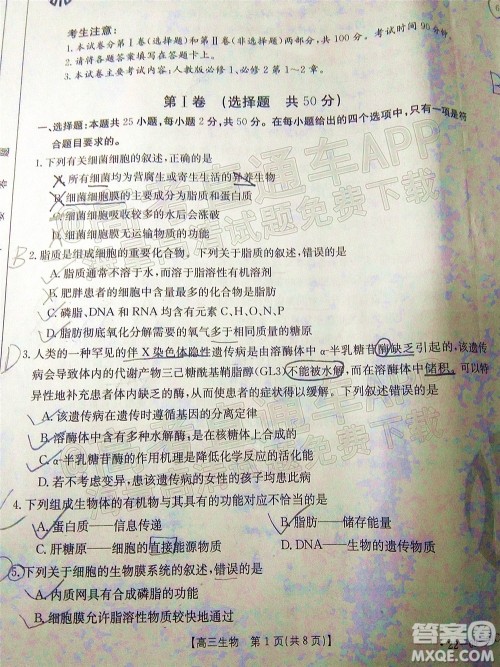 考生注意：
1.本试卷分第Ⅰ卷(选择题)和第Ⅱ卷(非选择题)两部分,共100分。考试时间90分钟。
2.请将各题答案填写在答题卡上。
3.本试卷主要考试内容:人教版必修1、必修2第1～2章。
第Ⅰ卷 (选择题 共50分)
一、选择题:本题共25小题,每小题2分,共50分。在每小题给出的四个选项中,只有一项是符
合题目要求的。
1.下列有关细菌细胞的叙述,正确的是
A.所有细菌均为营腐生或寄生生活的异养生物
B.细菌细胞膜的主要成分为脂质和蛋白质
C.细菌细胞吸收较多的水后会涨破
D.细菌细胞无运输物质的功能
B
2.脂质是组成细胞的重要化合物。下列关于脂质的叙述,错误的是
A.脂质通常不溶于水,而溶于脂溶性有机溶剂
B.肥胖患者的细胞中含量最多的化合物是脂肪
C.磷脂、DNA和RNA均含有元素C、H、O、N、P
D.脂肪彻底氧化分解需要的氧气多于相同质量的糖类
D
3.人类的一种罕见的伴X染色体隐性遗传病是由溶酶体中α-半乳糖苷酶缺乏引起的,该遗传
病会导致体内的代谢产物三己糖酰基鞘脂醇(GL3)不能被水解,而在溶酶体中储积。可以特
异性地补充人造酶使患者的症状得以缓解。下列叙述错误的是
A.该遗传病在遗传时遵循基因的分离定律
B.溶酶体中含有多种水解酶,是在核糖体上合成的
C.α-半乳糖苷酶的作用机理是降低化学反应的活化能
D.若不考虑变异,患该遗传病的女性的孩子均患病
4.下列组成生物体的有机物与其具有的功能对应不恰当的是
A.蛋白质——信息传递
B.脂肪——储存能量
C.肝糖原——直接能源物质
D.DNA——储存遗传物质
5.下列关于细胞的生物膜系统的叙述,错误的是
A.内质网具有合成某些物质的功能
B.细胞膜允许脂溶性物质较快地通过
【高三生物 第1页(共8页)】
答案通车APP
最新考试题免费下载
答案圈
MXQE.COM